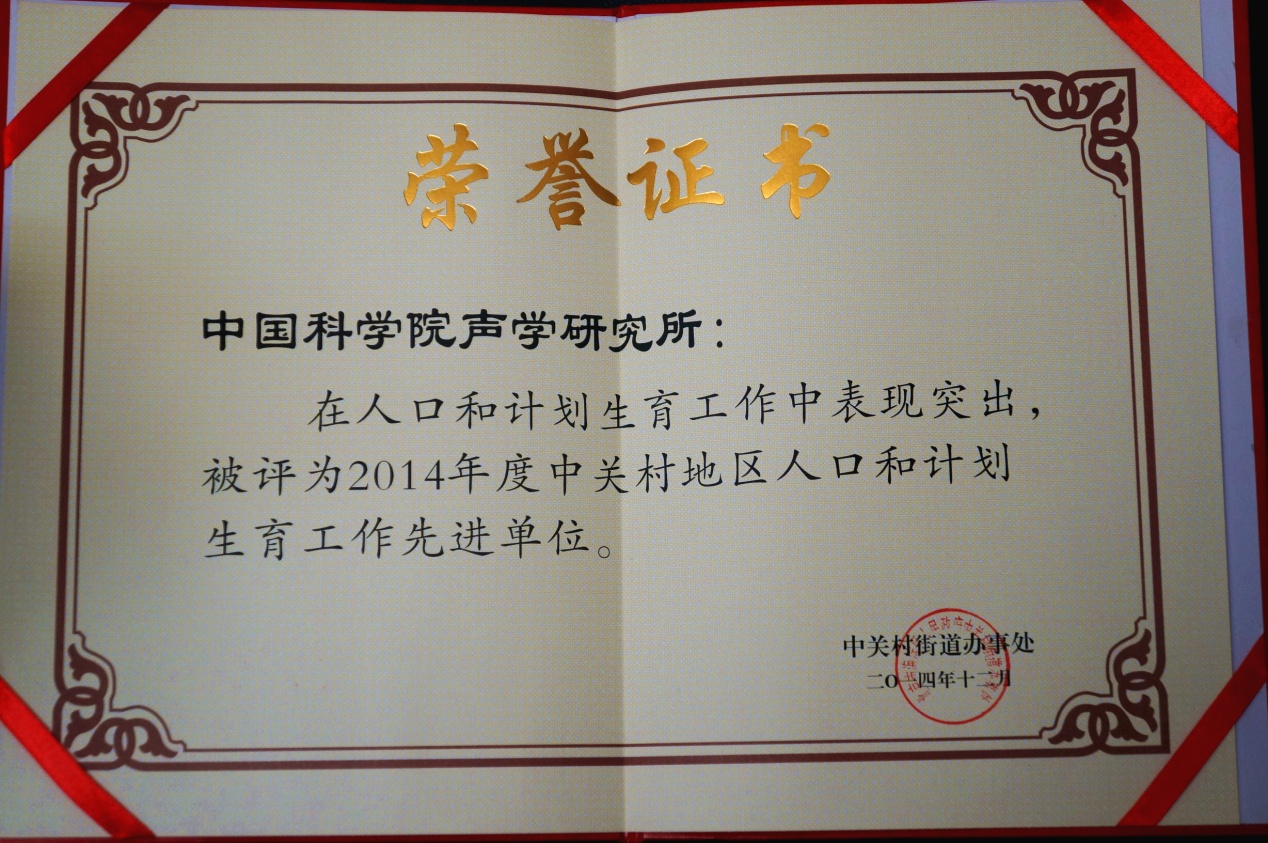 荣誉证书
中国科学院声学研究所：
在人口和计划生育工作中表现突出，
被评为2014年度中关村地区人口和计划
生育工作先进单位。
中关村街道办事处
二〇一四年十二月